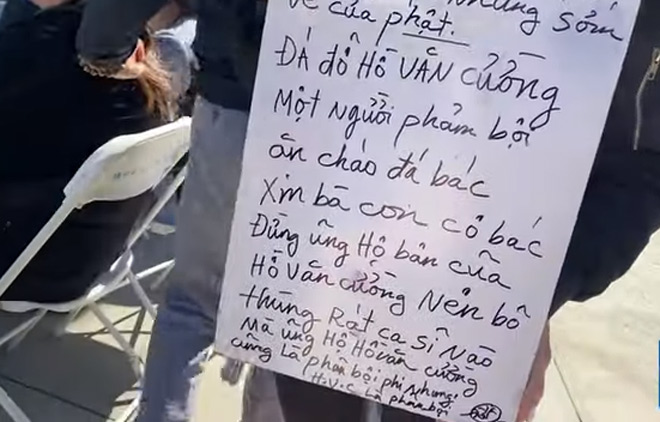 về của phật.
ĐÁ ĐỔ HỒ VĂN CƯỜNG
Một người phảm bội
ăn cháo đá bác
Xin bà con cô bác
Đừng ủng Hộ bản của
Hồ Văn cường Nên bỏ
thùng Rát ca sĩ nào
Mà ủng Hộ Hồ văn cường
cũng Là phản bội phi Nhung.
H.V.C Là phản bội